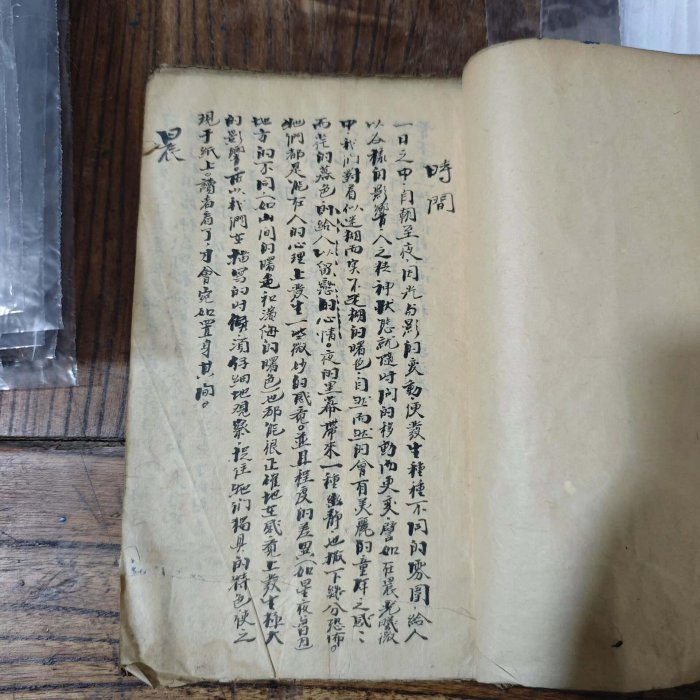 時間
一日之中，自朝至夜，因光与影的变動便發生種種不同的雰圍，給人
以各樣的影響，人之精神狀態就隨时间的移動而更变，譬如在晨光曦微
中我们對着似迷糊而实不迷糊的曙色，自然而然的會有美麗的童年之感；
而花的暮色的給人以留戀的心情。夜的黑幕帶來一種幽静也撒下幾分恐怖。
她們都是能在人的心理上發生一些微妙的感覺。並且程度的差異（如星夜与月
地方的不同（如山间的曙色和濱海的曙色）也都能很正確地在感覺上發生極大
的影響，所以我們在描寫的时候須仔细地观察，捉住她们獨具的特色使之
現于纸上。讀者看了，才會宛如置身其间。
晨